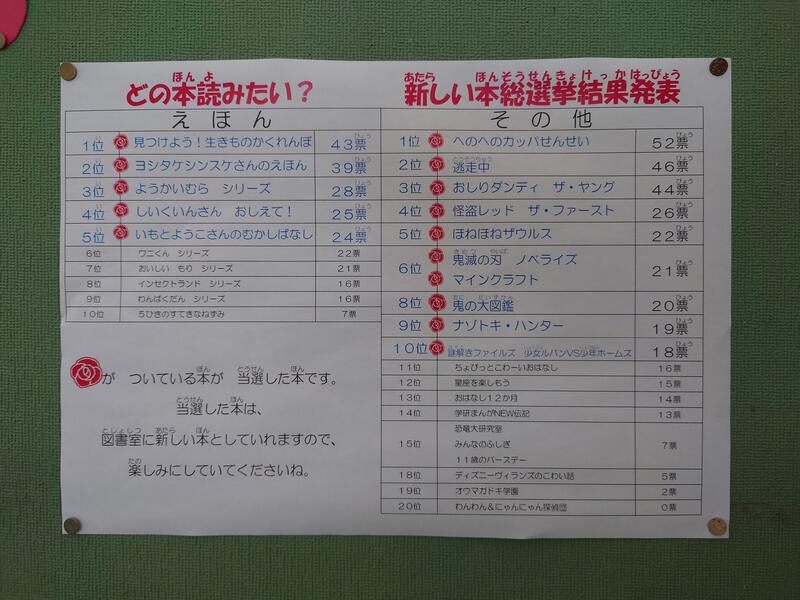 どの本読みたい？
新しい本総選挙結果発表
えほん
1位 見つけよう！生きものかくれんぼ 43票
2位 ヨシタケシンスケさんのえほん 39票
3位 ようかいむら シリーズ 28票
4位 しいくいんさん おしえて！ 25票
5位 いもとようこさんのむかしばなし 24票
6位 ワニくん シリーズ 22票
7位 おいしい もり シリーズ 21票
8位 インセクトランド シリーズ 16票
9位 わんぱくだん シリーズ 16票
10位 5ひきのすてきなねずみ 7票
が ついている本が 当選した本です。
当選した本は、
図書室に新しい本としていれますので、
楽しみにしていてくださいね。
その他
1位 へのへのカッパせんせい 52票
2位 逃走中 46票
3位 おしりダンディ ザ・ヤング 44票
4位 怪盗レッド ザ・ファースト 26票
5位 ほねほねザウルス 22票
6位 鬼滅の刃 ノベライズ 21票
マインクラフト
8位 鬼の大図鑑 20票
9位 ナゾトキ・ハンター 19票
10位 謎解きファイルズ 少女ルパンVS少年ホームズ 18票
11位 ちょびっとこわーいおはなし 16票
12位 星座を楽しもう 15票
13位 おはなし12か月 14票
14位 学研まんがNEW伝記 13票
恐竜大研究室
15位 みんなのふしぎ 7票
11歳のバースデー
18位 ディズニーヴィランズのこわい話 5票
19位 オウマガドキ学園 2票
20位 わんわん＆にゃんにゃん探偵団 0票